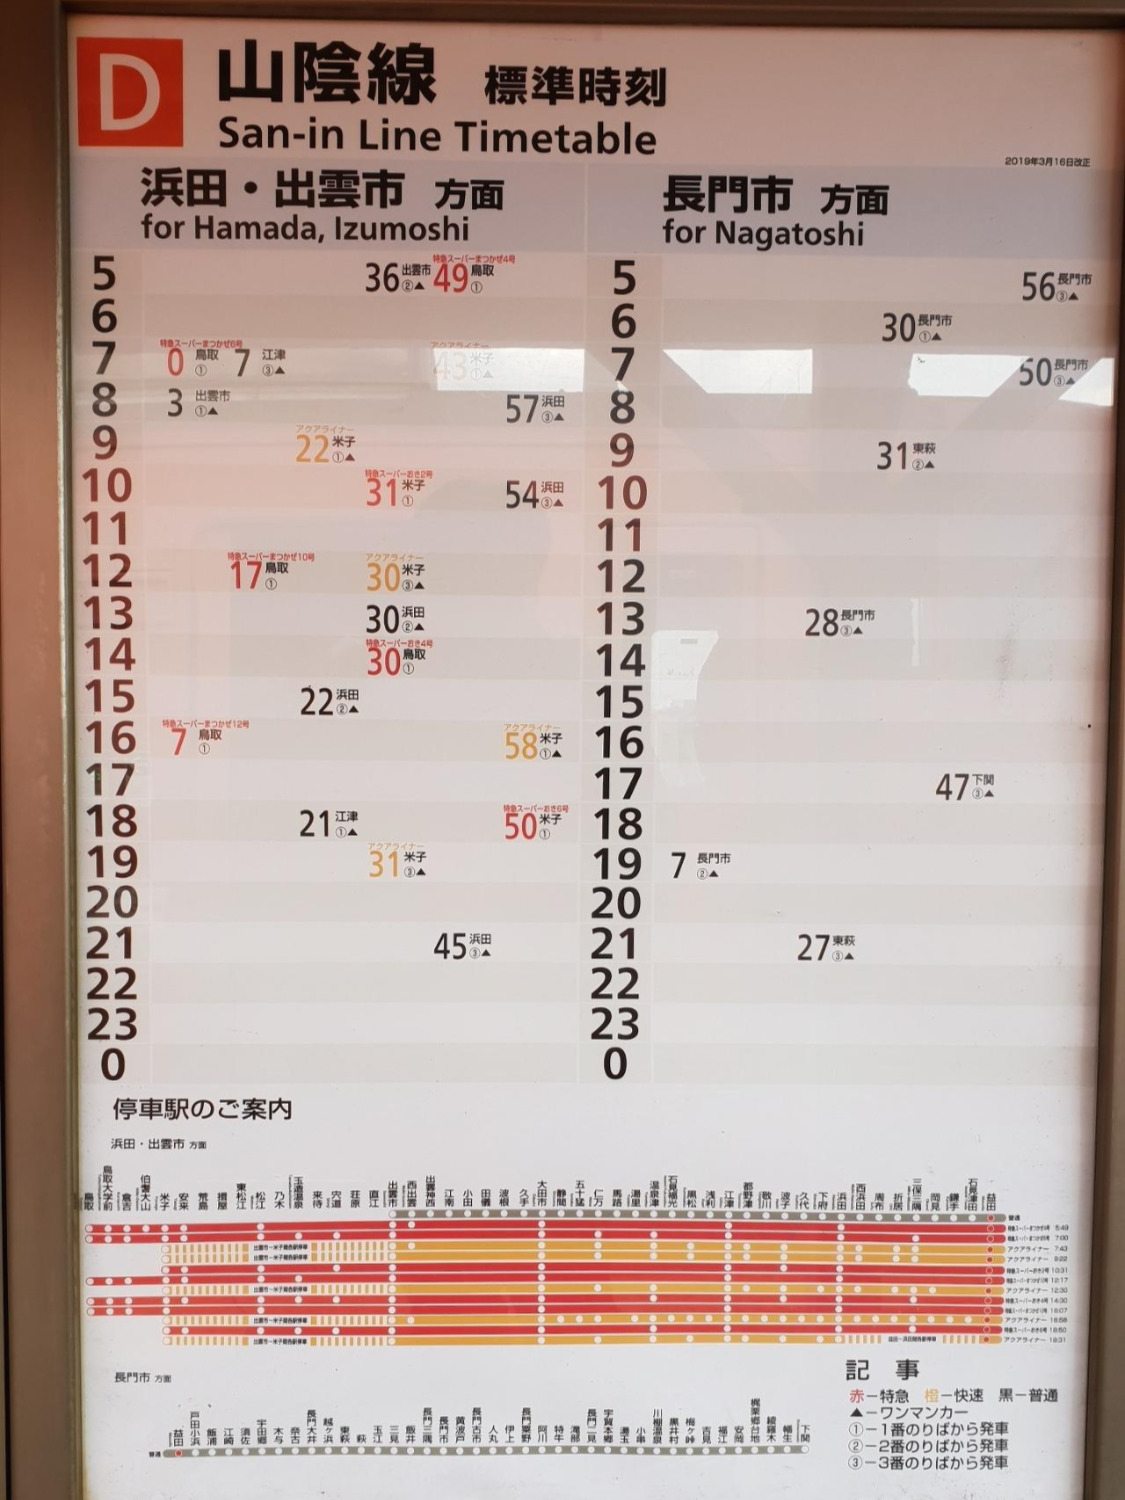 D 山陰線 標準時刻
San-in Line Timetable
2019年3月16日改正
浜田・出雲市 方面
for Hamada, Izumoshi
長門市 方面
for Nagatoshi
特急スーパーまつかぜ4号
5 36 出雲市 ②▲ 49 鳥取 ①
5 56 長門市 ③▲
6
6 30 長門市 ①▲
特急スーパーまつかぜ6号 アクアライナー
7 0 鳥取 ① 7 江津 ③▲ 43 米子 ①▲
7 50 長門市 ③▲
8 3 出雲市 ①▲ 57 浜田 ③▲
8
アクアライナー
9 22 米子 ①▲
9 31 東萩 ②▲
特急スーパーおき2号
10 31 米子 ① 54 浜田 ③▲
10
11
11
特急スーパーまつかぜ10号 アクアライナー
12 17 鳥取 ① 30 米子 ③▲
12
13 30 浜田 ②▲
13 28 長門市 ③▲
特急スーパーおき4号
14 30 鳥取 ①
14
15 22 浜田 ②▲
15
特急スーパーまつかぜ12号 アクアライナー
16 7 鳥取 ① 58 米子 ①▲
16
17
17 47 下関 ③▲
特急スーパーおき6号
18 21 江津 ①▲ 50 米子 ①
18
アクアライナー
19 31 米子 ③▲
19 7 長門市 ②▲
20
20
21 45 浜田 ③▲
21 27 東萩 ③▲
22
22
23
23
0
0
停車駅のご案内
浜田・出雲市 方面
鳥取 鳥取大学前 倉吉 伯耆大山 米子 安来 荒島 揖屋 東松江 松江 乃木 玉造温泉 来待 宍道 荘原 直江 出雲市 西出雲 出雲神西 江南 小田 田儀 波根 久手 大田市 静間 五十猛 仁万 馬路 湯里 温泉津 石見福光 黒松 浅利 江津 都野津 敬川 波子 久代 下府 浜田 西浜田 周布 折居 三保三隅 岡見 鎌手 石見津田 益田
普通
特急スーパーまつかぜ4号 5:49
特急スーパーまつかぜ6号 7:00
アクアライナー 7:43
アクアライナー 9:22
特急スーパーおき2号 10:31
特急スーパーまつかぜ10号 12:17
アクアライナー 12:30
特急スーパーおき4号 14:30
特急スーパーまつかぜ12号 16:07
アクアライナー 16:58
特急スーパーおき6号 18:50
アクアライナー 19:31
長門市 方面
普通 益田 戸田小浜 飯浦 江崎 須佐 宇田郷 木与 奈古 長門大井 越ヶ浜 東萩 萩 玉江 三見 飯井 長門三隅 長門市 黄波戸 長門古市 人丸 伊上 長門粟野 阿川 特牛 滝部 長門二見 宇賀本郷 湯玉 小串 川棚温泉 黒井村 梅ヶ峠 吉見 福江 安岡 梶栗郷台地 綾羅木 幡生 下関
記 事
赤－特急 橙－快速 黒－普通
▲－ワンマンカー
①－1番のりばから発車
②－2番のりばから発車
③－3番のりばから発車